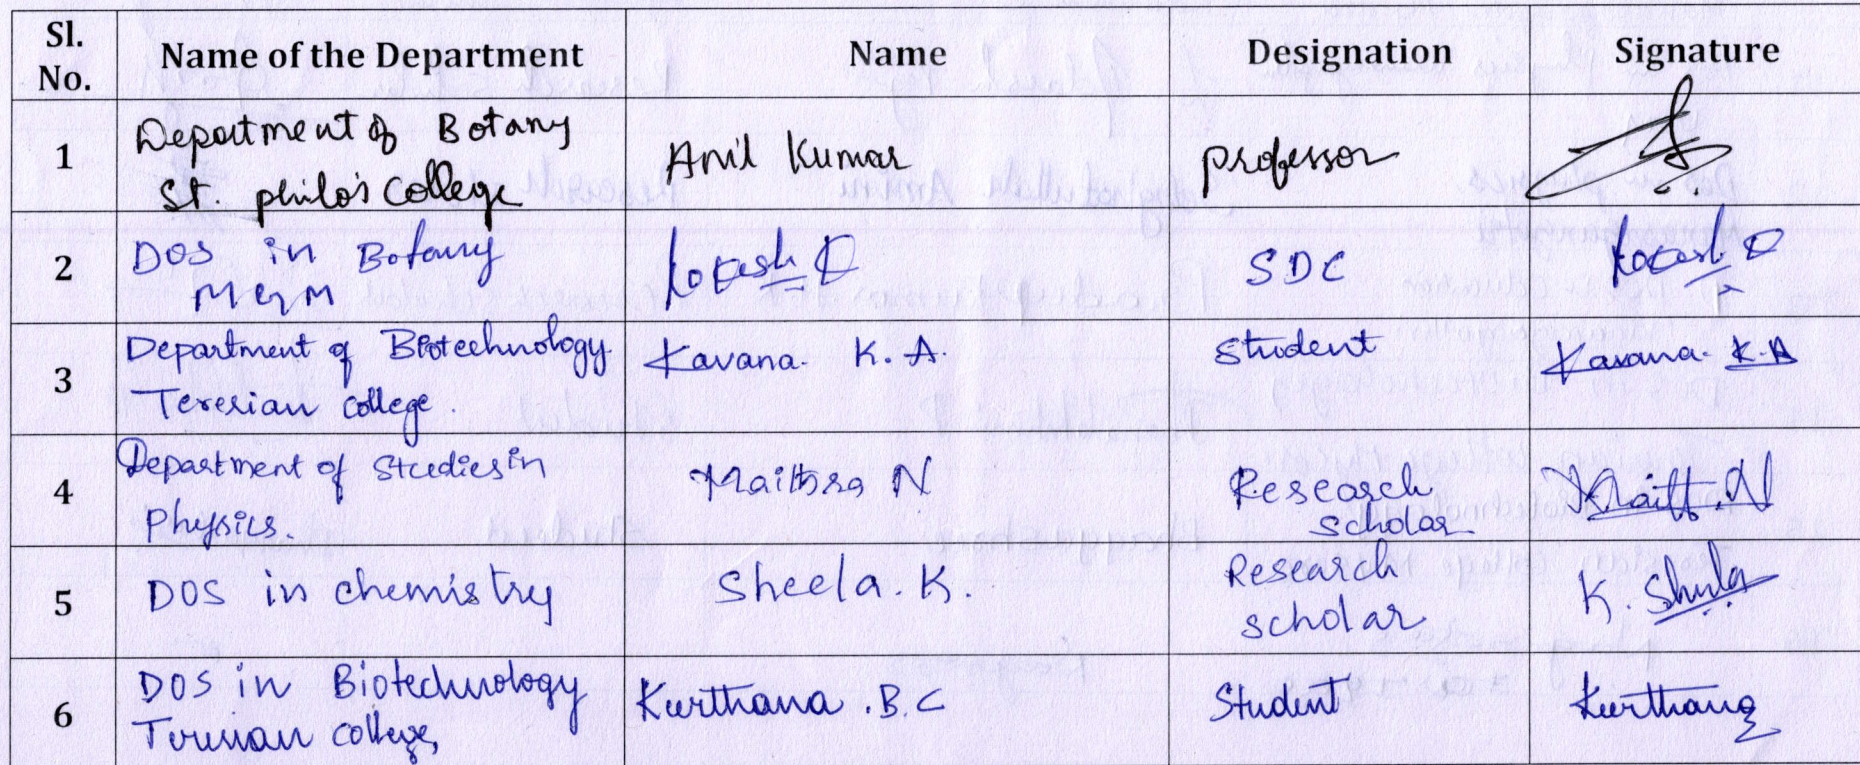 Sl. No. Name of the Department Name Designation Signature
1 Department of Botany St. philo's college Anil Kumar professor
2 DOS in Botany Lokesh SDC Lokesh
3 Department of Biotechnology Teresian college. Kavana. K. A. Student Kavana. K.A
4 Department of Studies in physics. Maithra N Research scholar Maith. N
5 DOS in chemistry Sheela. K. Research scholar K. Sheela
6 DOS in Biotechnology Teresian college, Keerthana .B.C Student Keerthana